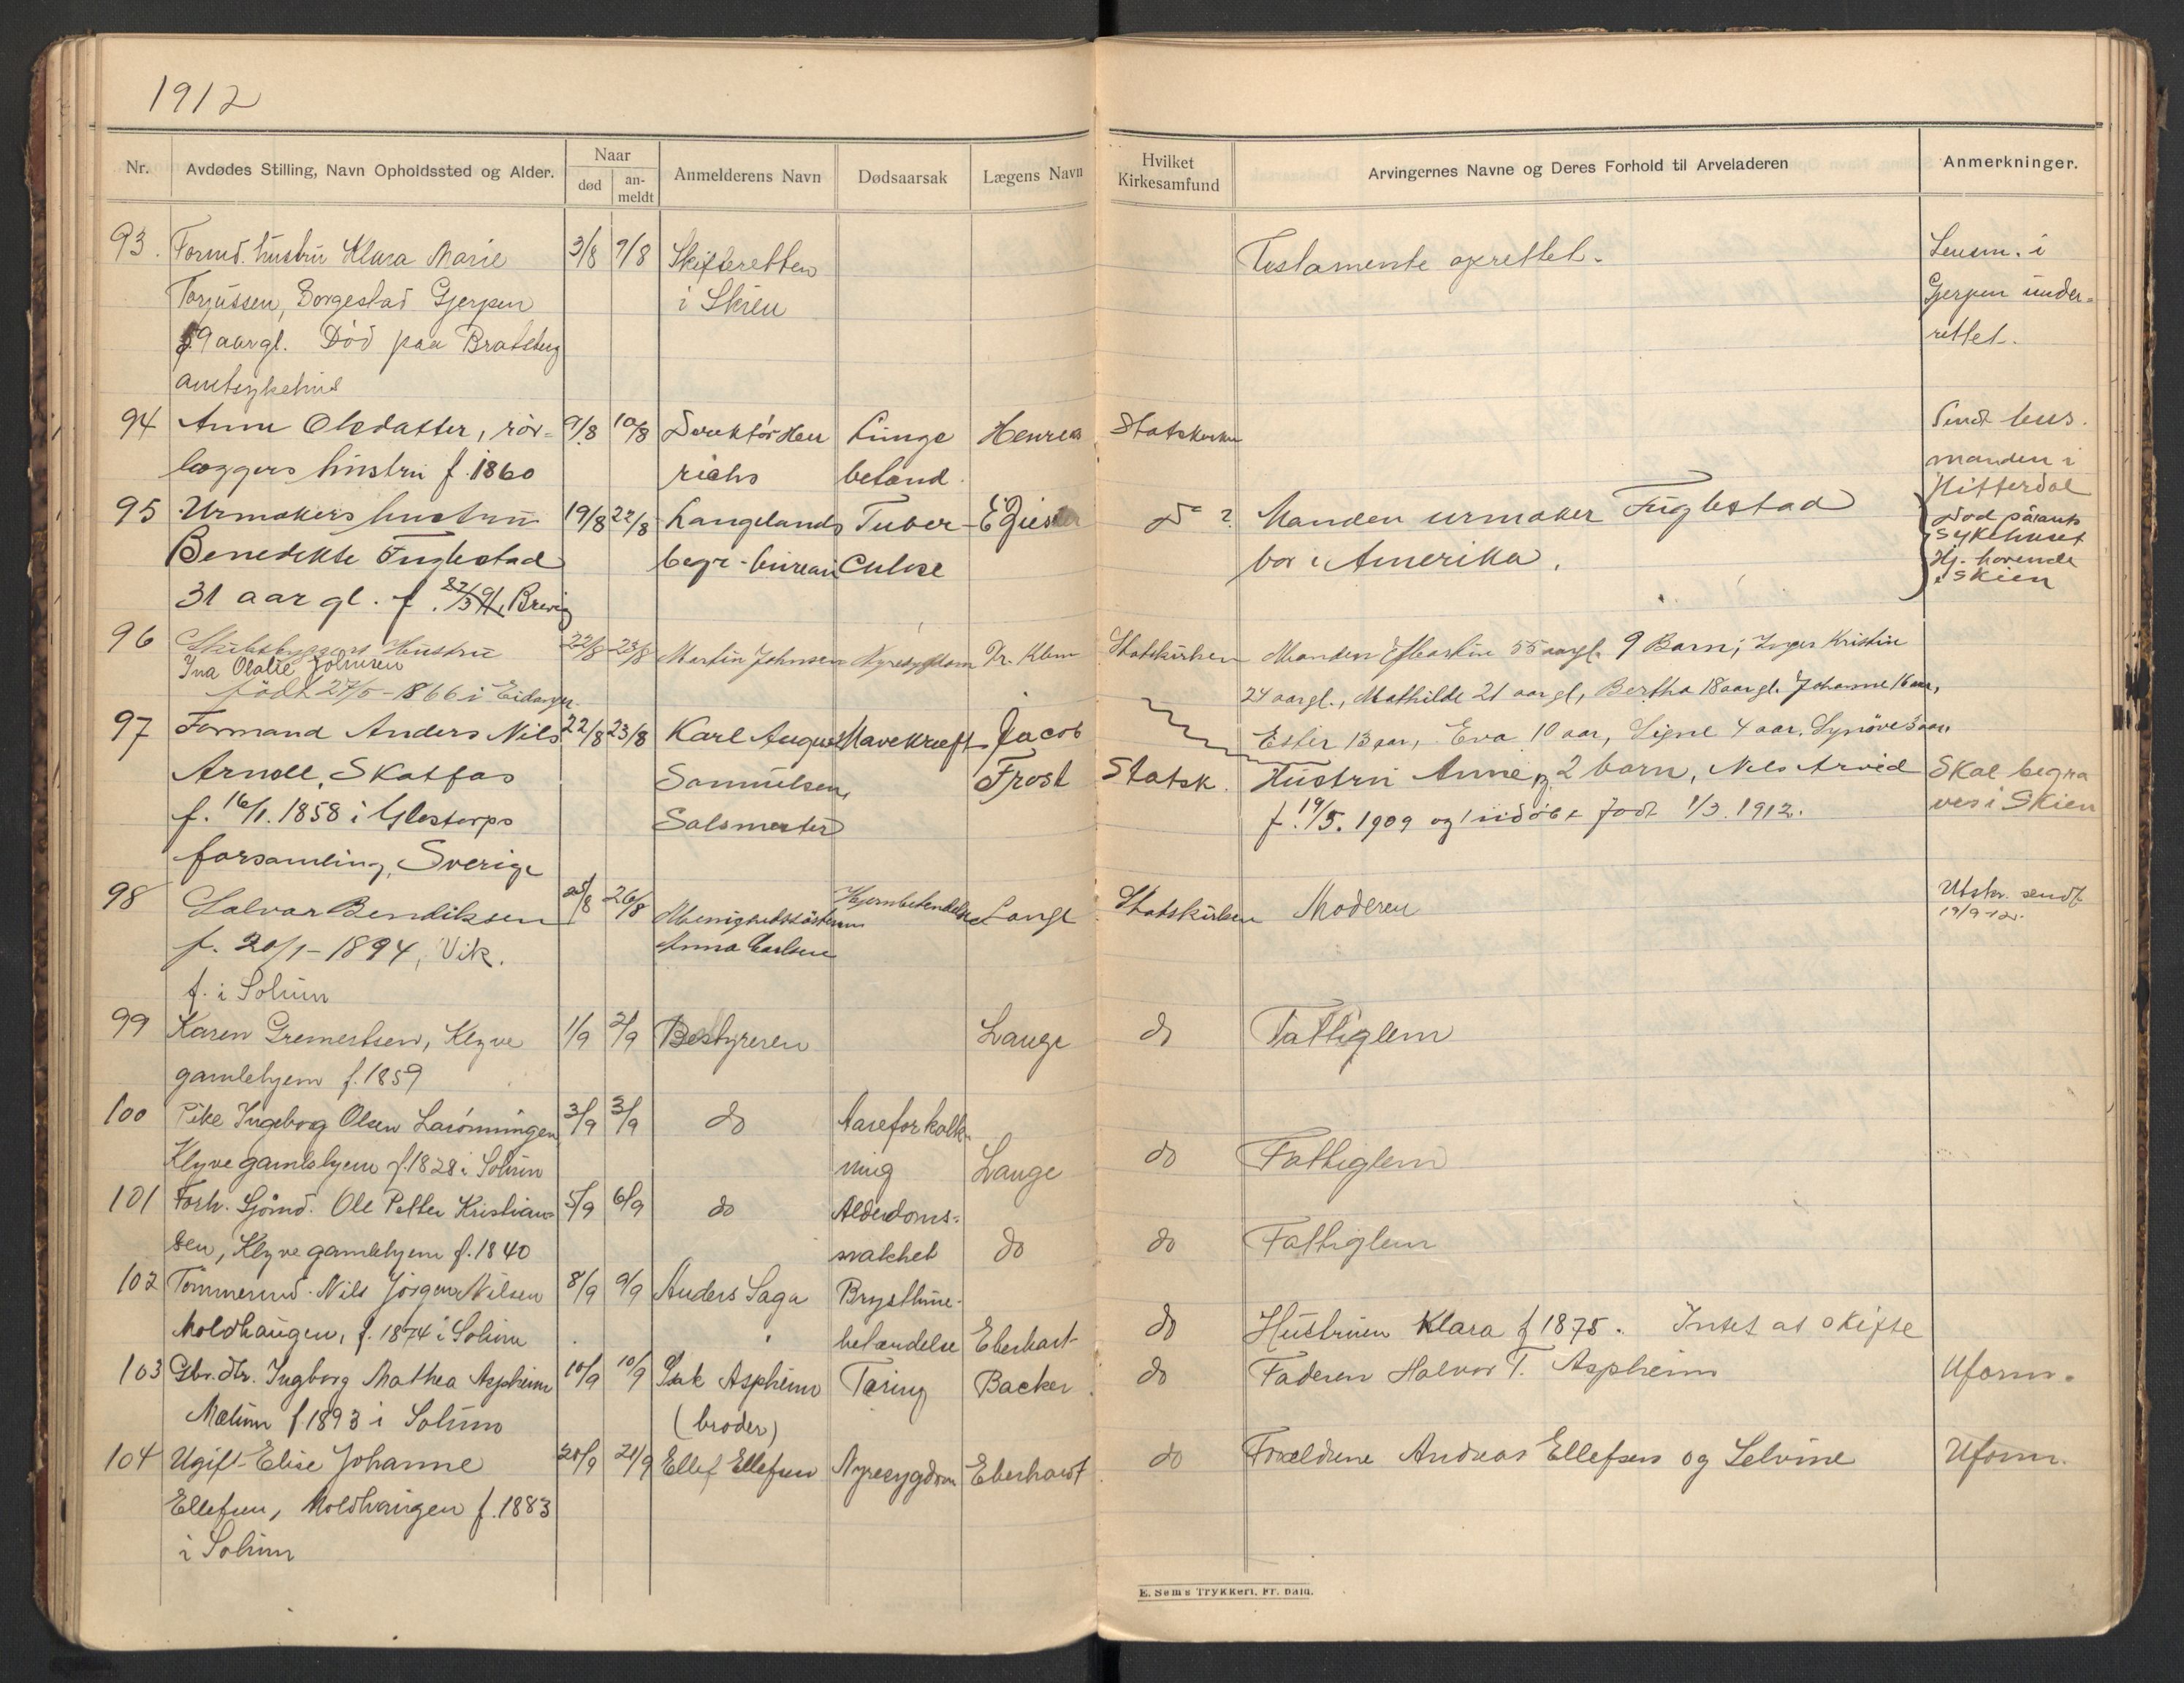 1912
Nr. Avdødes Stilling, Navn Opholdssted og Alder. Naar død an-meldt Anmelderens Navn Dødsaarsak Lægens Navn Hvilket Kirkesamfund Arvingernes Navne og Deres Forhold til Arveladeren Anmerkninger.
93. Formd. hustru Klara Marie 3/8 9/8 Skifteretten Testamente oprettet. Lensm. i
Torjussen, Borgestad Gjerpen i Skien Gjerpen under-
59 aar gl. Død paa Bratsberg rettet.
amtsykehus
94 Anne Olsdatter, rör- 9/8 10/8 Direktör Hen Lunge Statskirken Sendt lens.
læggers hustru f. 1860 richs betænd. manden i
Hitterdal
95 Urmakers hustru 19/8 22/8 Langelands Tuber- do ? Manden urmaker Fuglestad Död på amts
Benedikte Fuglestad begr-bureau culose bor i Amerika. sykehuset
31 aar gl. f. Brevig Hj. hørende i Skien
96 Skibsbyggers Hustru 22/8 23/8 Martin Johnsen Nyresygdom Dr. Statskirken Manden 55 aar gl. 9 Barn; Inger Kristine
Ina Olalie Johnsen 24 aar gl., Mathilde 21 aar gl, Bertha 18 aar gl. Johanne 16 aar,
født 27/5-1866 i Eidanger Ester 13 aar, Eva 10 aar, Signe 4 aar, Synöve 3 aar
97 Formand Anders Nils 22/8 23/8 Karl August Mavekræft Jacob Statsk. Hustru Anne, 2 barn, Nils Arvid Skal begra
Arndt, Skotfos Samuelsen, Frost f. 19/5. 1909 og 1 udöbt född 1/3. 1912. ves i Skien
f. 16/1. 1858 i Glostorps Salsmester
forsamling, Sverige
98 Halvor Bendiksen 25/8 26/8 Menighetssösteren Hjernebetendelse Lange Statskirken Moderen Utskr. sendt
f. 20/1-1894, Vik. Anna Carlsen 19/9-12.
f. i Solum
99 Karen Gremertsen, Klyve 1/9 2/9 Bestyreren Lange do Fattiglem
gamlehjem f. 1859
100 Pike Ingeborg Olsen Larönningen 3/9 3/9 do Aareforkalk- do Fattiglem
Klyve gamlehjem f. 1828 i Solum ning Lange
101 Forh. Sjömd. Ole Petter Kristian- 5/9 6/9 do Alderdoms- do Fattiglem
sen, Klyve gamlehjem f. 1840 svakhet do
102 Tömmermd. Nils Jörgen Nilsen 8/9 9/9 Anders Saga Brysthinne- do Hustruen Klara f 1875. Intet at skifte
Moldhaugen, f. 1874 i Solum betændelse Eberhart
103 Gbr. dtr. Ingborg Mathea Aspheim 10/9 10/9 Isak Aspheim Tæring Backer do Faderen Halvor T. Aspheim Uform.
Mælum f. 1893 i Solum (broder)
104 Ugift Elise Johanne 20/9 21/9 Ellef Ellefsen Nyresygdom Eberhardt do Forældrene Andreas Ellefsen og Selvine Uform.
Ellefsen, Moldhaugen f. 1883
i Solum
E. Sem's Trykkeri, Fr. hald.